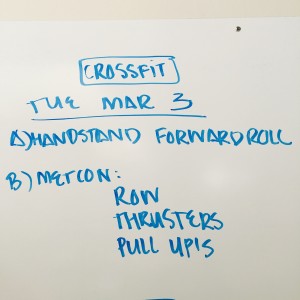 CROSSFIT
TUE MAR 3
A) HANDSTAND FORWARD ROLL
B) METCON:
ROW
THRUSTERS
PULL UP'S